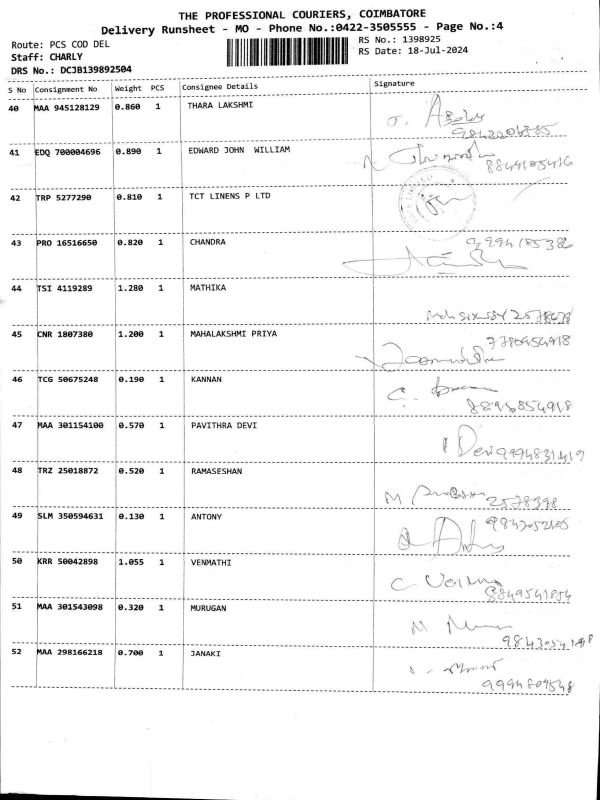 THE PROFESSIONAL COURIERS, COIMBATORE
Delivery Runsheet - MO - Phone No.:0422-3505555 - Page No.:4
Route: PCS COD DEL
RS No.: 1398925
Staff: CHARLY
RS Date: 18-Jul-2024
DRS No.: DCJB139892504
S No Consignment No Weight PCS Consignee Details Signature
40 MAA 945128129 0.860 1 THARA LAKSHMI
41 EDQ 700004696 0.890 1 EDWARD JOHN WILLIAM
8849105416
42 TRP 5277290 0.810 1 TCT LINENS P LTD
43 PRO 16516650 0.820 1 CHANDRA
9994185386
44 TSI 4119289 1.280 1 MATHIKA
2578678
45 CNR 1807380 1.200 1 MAHALAKSHMI PRIYA
7780954918
46 TCG 50675248 0.190 1 KANNAN
C.
8896854918
47 MAA 301154100 0.570 1 PAVITHRA DEVI
Devi 9994831419
48 TRZ 25018872 0.520 1 RAMASESHAN
M
2578398
49 SLM 350594631 0.130 1 ANTONY
50 KRR 50042898 1.055 1 VENMATHI
C
8849541854
51 MAA 301543098 0.320 1 MURUGAN
M
52 MAA 298166218 0.700 1 JANAKI
9994809548